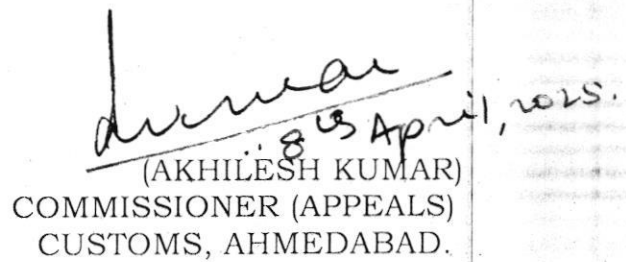 8th April, 2025.
(AKHILESH KUMAR)
COMMISSIONER (APPEALS)
CUSTOMS, AHMEDABAD.